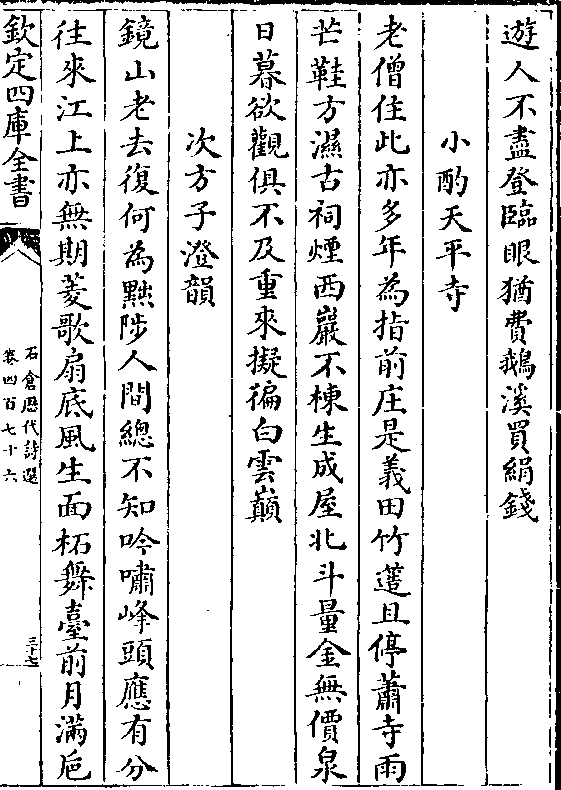 遊人不盡登臨眼猶費鵝溪買絹錢
小酌天平寺
老僧住此亦多年為指前庄是義田竹簉且停蕭寺雨
芒鞋方濕古祠煙西巖不棟生成屋北斗量金無價泉
日暮欲觀俱不及重來擬徧白雲巔
次方子澄韻
鏡山老去復何為黜陟人間總不知吟嘯峰頭應有分
往來江上亦無期菱歌扇底風生面柘舞臺前月滿巵
欽定四庫全書
石倉歷代詩選
卷四百七十六
三十七